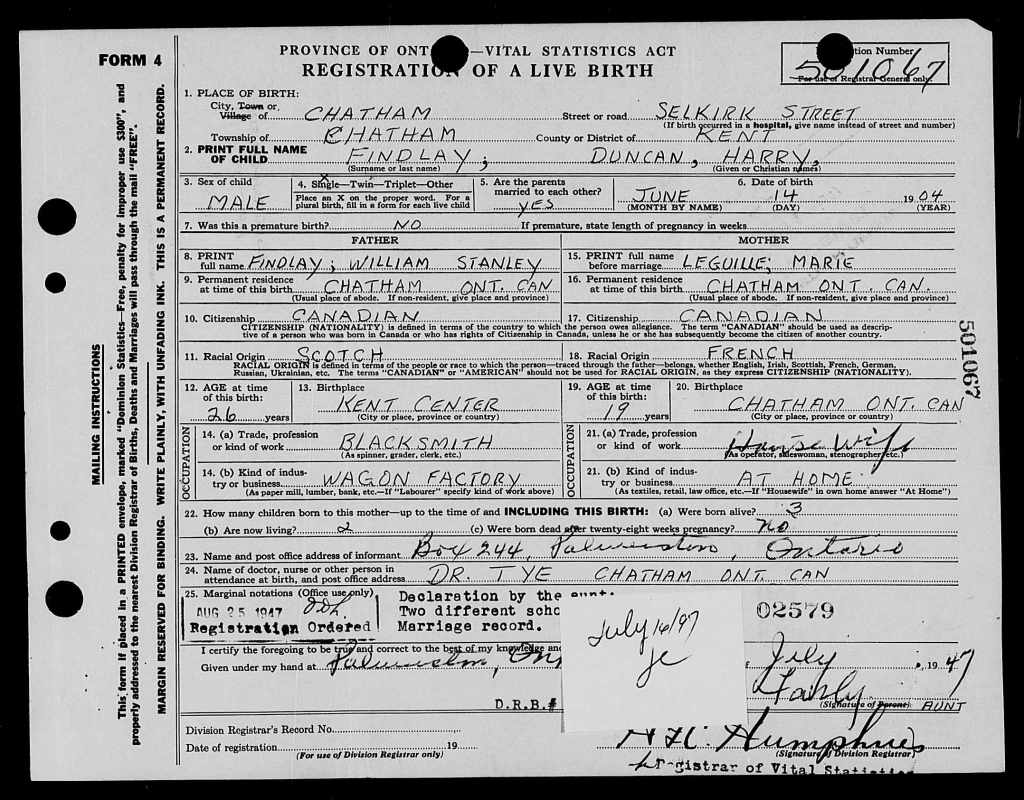 FORM 4
PROVINCE OF ONT —VITAL STATISTICS ACT
REGISTRATION OF A LIVE BIRTH
tion Number
501067
For use of Registrar General only.
1. PLACE OF BIRTH:
City, Town or
Village of CHATHAM Street or road SELKIRK STREET
(If birth occurred in a hospital, give name instead of street and number)
Township of CHATHAM County or District of KENT
2. PRINT FULL NAME OF CHILD FINDLAY; DUNCAN, HARRY,
(Surname or last name) (Given or Christian names)
3. Sex of child MALE
4. Single—Twin—Triplet—Other X
Place an X on the proper word. For a plural birth, fill in a form for each live child
5. Are the parents married to each other? YES
6. Date of birth
JUNE 14 1904
(MONTH BY NAME) (DAY) (YEAR)
7. Was this a premature birth? NO If premature, state length of pregnancy in weeks
FATHER MOTHER
8. PRINT full name FINDLAY; WILLIAM STANLEY
15. PRINT full name before marriage LEGUILLE; MARIE
9. Permanent residence at time of this birth CHATHAM ONT. CAN
(Usual place of abode. If non-resident, give place and province)
16. Permanent residence at time of this birth CHATHAM ONT. CAN.
(Usual place of abode. If non-resident, give place and province)
10. Citizenship CANADIAN 17. Citizenship CANADIAN
CITIZENSHIP (NATIONALITY) is defined in terms of the country to which the person owes allegiance. The term "CANADIAN" should be used as descrip-
tive of a person who was born in Canada or who has rights of Citizenship in Canada, unless he or she has subsequently become the citizen of another country.
11. Racial Origin SCOTCH 18. Racial Origin FRENCH
RACIAL ORIGIN is defined in terms of the people or race to which the person—traced through the father—belongs, whether English, Irish, Scottish, French, German,
Russian, Ukrainian, etc. The terms "CANADIAN" or "AMERICAN" should not be used for RACIAL ORIGIN, as they express CITIZENSHIP (NATIONALITY).
12. AGE at time of this birth: 26 years
13. Birthplace KENT CENTER
(City or place, province or country)
19. AGE at time of this birth: 19 years
20. Birthplace CHATHAM ONT. CAN
(City or place, province or country)
OCCUPATION
14. (a) Trade, profession or kind of work BLACKSMITH
(As spinner, grader, clerk, etc.)
14. (b) Kind of indus-
try or business WAGON FACTORY
(As paper mill, lumber, bank, etc.—If "Labourer" specify kind of work above)
OCCUPATION
21. (a) Trade, profession or kind of work House Wife
(As operator, saleswoman, stenographer, etc.)
21. (b) Kind of indus-
try or business AT HOME
(As textiles, retail, law office, etc.—If "Housewife" in own home answer "At Home")
22. How many children born to this mother—up to the time of and INCLUDING THIS BIRTH: (a) Were born alive? 3
(b) Are now living? 2 (c) Were born dead after twenty-eight weeks pregnancy? no
23. Name and post office address of informant Box 244, Palmerston, Ontario
24. Name of doctor, nurse or other person in
attendance at birth, and post office address DR. TYE CHATHAM ONT. CAN
25. Marginal notations (Office use only)
AUG 25 1947
Registration Ordered
Declaration by the aunt:
Two different scho
Marriage record.
02579
July 16/97
jc
I certify the foregoing to be true and correct to the best of my knowledge and
Given under my hand at Palmerston, On July 1947
Fahly
(Signature of Parent) AUNT
D.R.B.#
Division Registrar's Record No.
Date of registration 19
(For use of Division Registrar only)
H.C. Humphries
(Signature of Division Registrar)
Registrar of Vital Statistics
501067
MAILING INSTRUCTIONS
This form if placed in a PRINTED envelope, marked "Dominion Statistics—Free, penalty for improper use $300", and
properly addressed to the nearest Division Registrar of Births, Deaths and Marriages will pass through the mail "FREE".
MARGIN RESERVED FOR BINDING. WRITE PLAINLY, WITH UNFADING INK. THIS IS A PERMANENT RECORD.